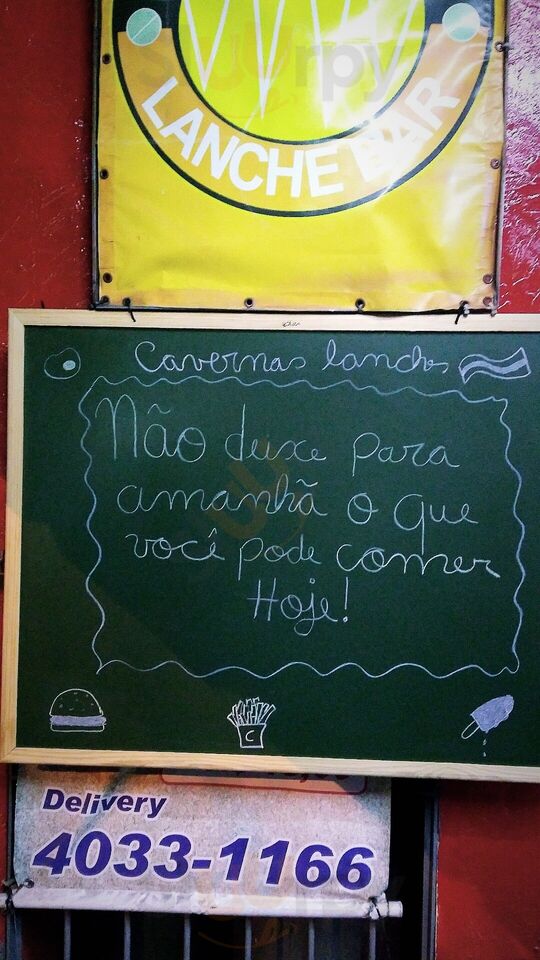 LANCHE BAR
Cavernas lanches
Não deixe para
amanhã o que
você pode comer
Hoje!
C
Delivery
4033-1166